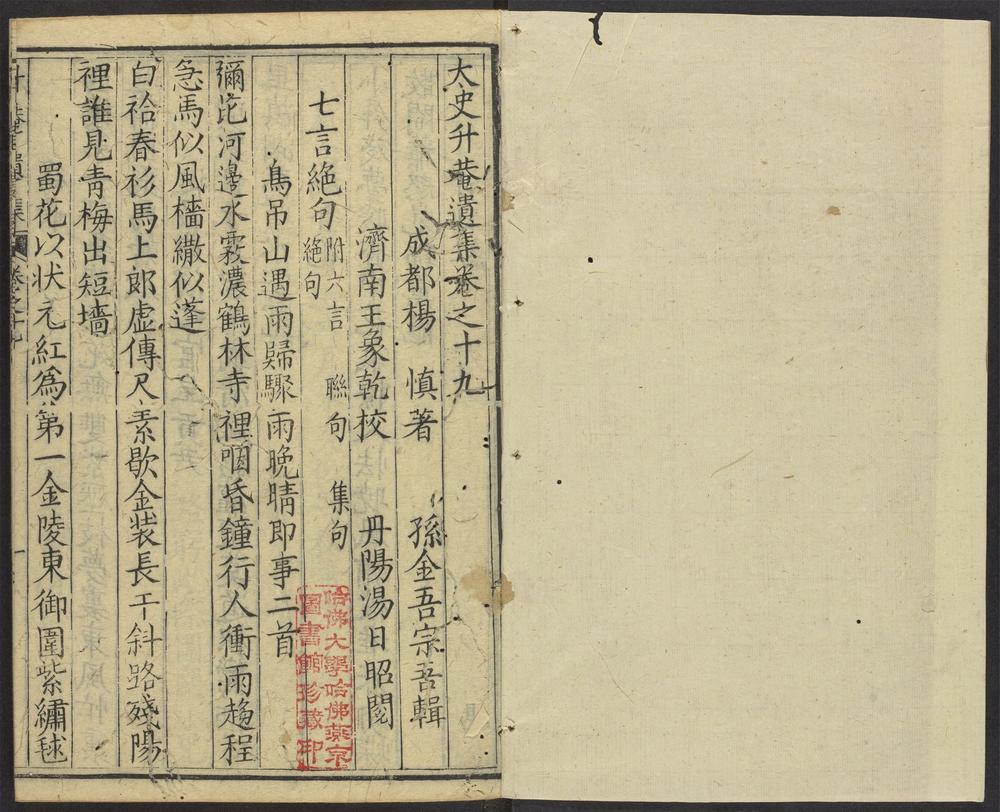 太史升菴遺集卷之十九
成都楊　慎著　孫金吾宗吾輯
濟南王象乾校　丹陽湯日昭閱
七言絕句附六言絕句　聯句　集句
鳥吊山遇雨歸驟雨晚晴即事二首
彌苴河邊水霧濃鶴林寺裡咽昏鐘行人衝雨趨程
急馬似風檣繖似蓬
白袷春衫馬上郎虛傳尺素歇金装長干斜路殘陽
裡誰見青梅出短墻
蜀花以状元紅為第一金陵東御園紫繡毬
哈佛大學哈佛燕京
圖書館珍藏印